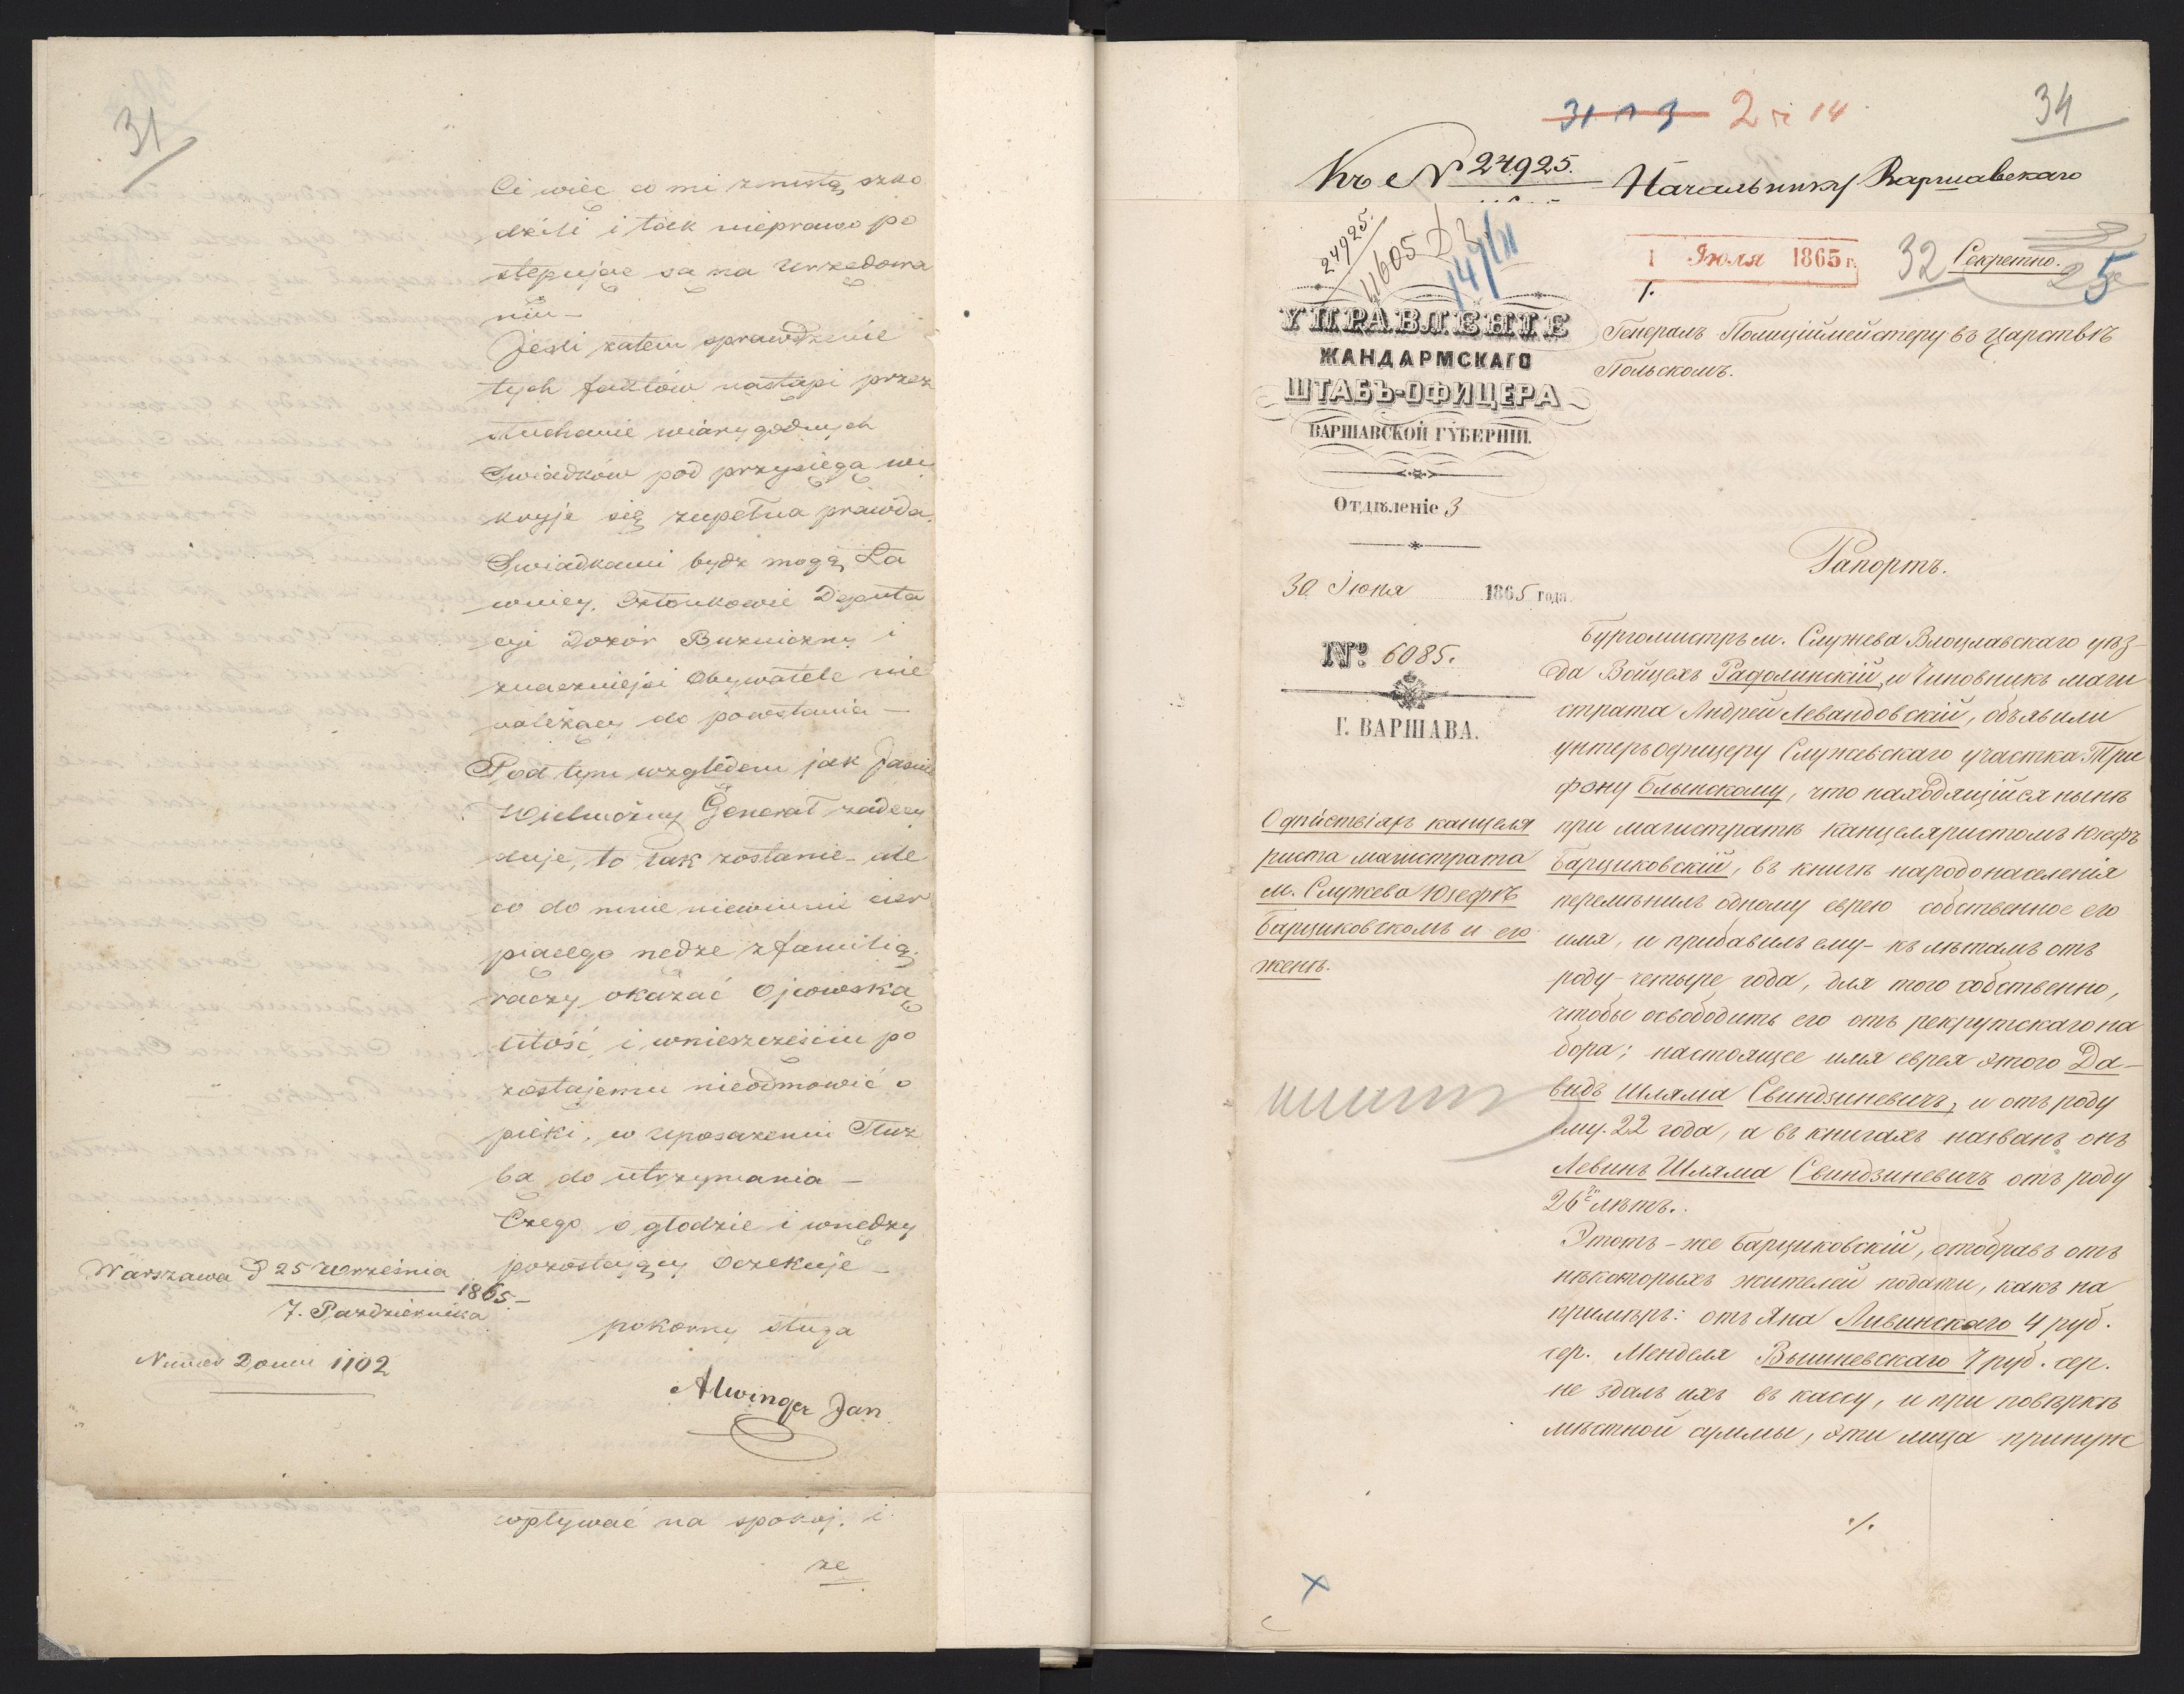 31
Ci więc co mi zemstą szko
dzili i tak nieprawo po
stępując są na Urzędowa
niu —
Jeśli zatem sprawdzenie
tych faktów nastąpi przez
słuchanie wiarygodnych
Swiadków pod przysięgą wy
kryje się zupełna prawda.
Swiadkami bydz mogą Ła
wnicy, Członkowie Deputa
cyi Dozór Buzniczny i
znaczniejsi Obywatele nie
należący do powstania —
Pod tym względem jak Jasnie
Wielmożny Generał zadecy
duje, to tak zostanie — ale
co do mnie niewinnie cier
piącego nędzę z familią
raczy okazać Ojcowską
litość i w nieszczęściu po
zostajemu nieodmowić o
pieki, w uposażeniu Służ
ba do utrzymania —
Czego o głodzie i w nędzy
pozostający oczekuje —
Warszawa d 25 Września
7. Pazdziernika 1865 —
pokorny sługa
Numer Domu 1102
Alwinger Jan
wpływać na spokoj. i
ze
34
31 n 3 2 и 14
Къ № 24925. Начальнику Варшавскаго
24925.
11605
14/VII
1 Іюля 1865 г.
32
Секретно.
25
УПРАВЛЕНІЕ
ЖАНДАРМСКАГО
ШТАБЪ-ОФИЦЕРА
ВАРШАВСКОЙ ГУБЕРНІИ.
Отдѣленіе 3
30 Іюня 1865 года.
№ 6085.
Г. ВАРШАВА.
О дѣйствіяхъ канцеля
риста магистрата
м. Служева Юзефѣ
Барциковскомъ и его
женѣ.
Генералъ Полиціймейстеру въ Царствѣ
Польскомъ.
Рапортъ.
Бургомистръ м. Служева Влоцлавскаго уѣз-
да Войцехъ Радолинскій, и Чиновникъ маги
страта Андрей Левандовскій, объявили
унтеръ офицеру Служевскаго участка Три
фону Блынскому, что находящійся нынѣ
при магистратѣ канцеляристомъ Юзефъ
Барциковскій, въ книгѣ народонаселенія
перемѣнилъ одному еврею собственное его
имя, и прибавилъ ему - къ лѣтамъ отъ
роду - четыре года, для того собственно,
чтобы освободить его отъ рекрутскаго на
бора; настоящее имя еврея этого Да-
видъ Шляма Свиндзиневичъ, и отъ роду
ему 22 года, а въ книгахъ названъ онъ
Левинъ Шляма Свиндзиневичъ отъ роду
26 лѣтъ.
Этотъ-же Барциковскій, отобравъ отъ
нѣкоторыхъ жителей подати, какъ на
примѣръ: отъ Яна Ливинскаго 4 руб.
сер. Менделя Вышневскаго 4 руб. сер.
не здалъ ихъ въ кассу, и при повѣркѣ
мѣстной суммы, эти лица принуж
./.